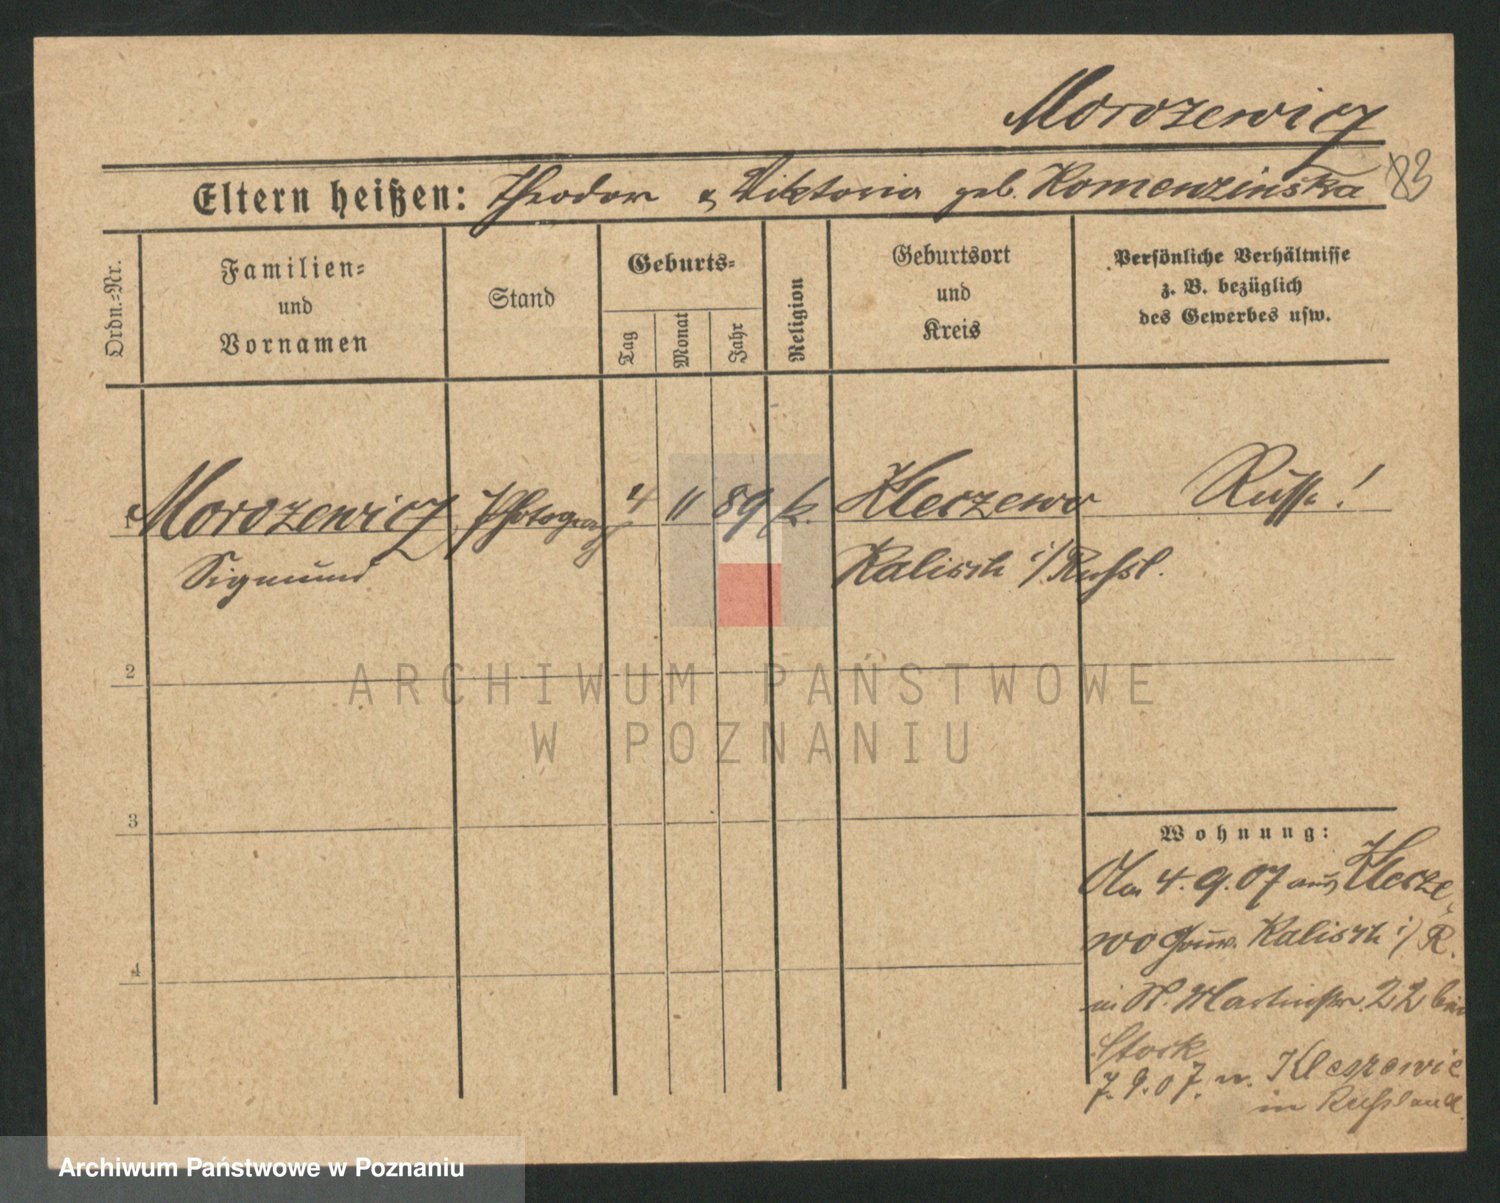 Morozewicz
Eltern heißen: Theodor & Viktoria geb. Komenzinska
83
Ordn.=Nr.
Familien=
und
Vornamen
Stand
Geburts=
Tag
Monat
Jahr
Religion
Geburtsort
und
Kreis
Persönliche Verhältnisse
z. B. bezüglich
des Gewerbes usw.
1 Morozewicz Photograph 4 11 89 k. Kleczewo Russe!
Sigmund Kalisch i/Rußl.
2
3
4
Wohnung:
4.9.07 aus Klecze-
wo Gouv. Kalisch i/R.
in St. Martinstr. 22 bei
Stork
7.9.07. n. Kleczewie
in Russland
ARCHIWUM PAŃSTWOWE
W POZNANIU
Archiwum Państwowe w Poznaniu